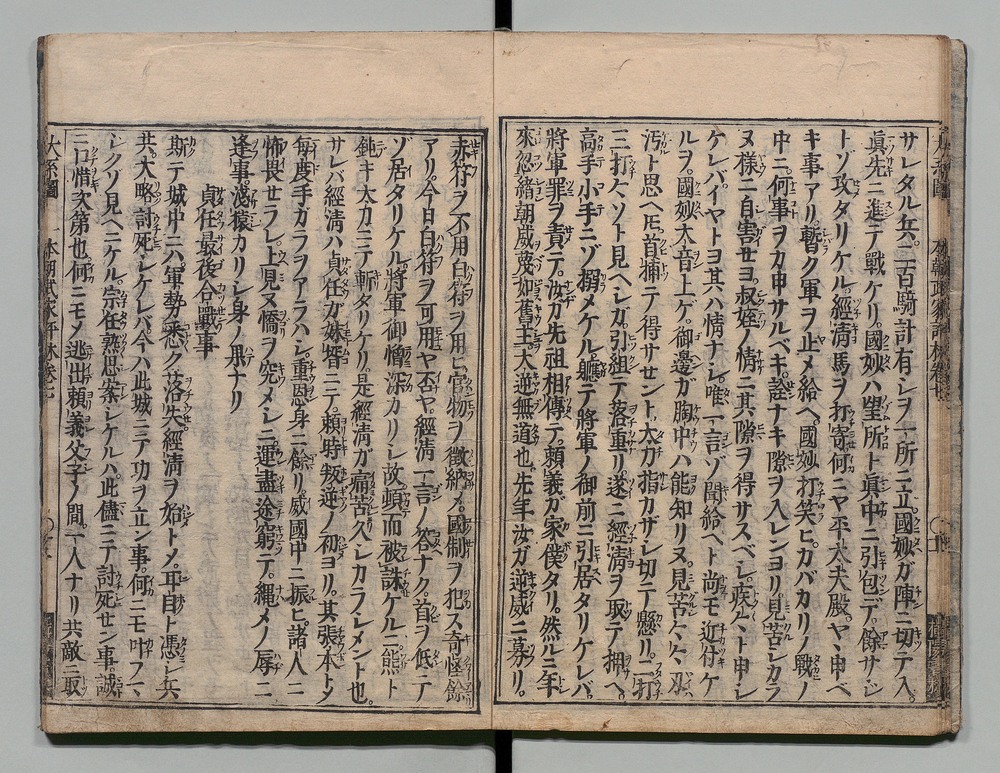 サレタル兵、二百騎計有シヲ一所ニ立、國妙ガ陣ニ切テ入。
眞先ニ進デ戰ケリ。國妙ハ望所ト眞中ニ引包デ、餘サジ
トゾ攻タリケル。經清馬ヲ打寄、何ニヤ平大夫殿。ヤヽ申ベ
キ事アリ。暫ク軍ヲ止メ給ヘ。國妙打笑ヒ、カバカリノ戰ノ
中ニ、何事ヲカ申サルベキ。詮ナキ隙ヲ入レンヨリ、見苦シカラ
ヌ樣ニ自害セヨ。叔姪ノ情ニ其隙ヲ得サスベシ。疾々ト申シ
ケレバ、イヤトヨ其ハ情ナシ。唯一言ゾ聞給ヘト尚モ近付ケ
ルヲ、國妙大音上ゲ、御邊ガ胸中ハ能知リヌ。見苦々々、刄
汚ト思ヘ𪜈、首捕テ得サセント、太刀指カザシ切テ懸リ、二打
三打々ゾト見ヘシガ、引組テ落重リ、遂ニ經清ヲ取テ押ヘ、
高手小手ニゾ搦メケル。軈テ將軍ノ御前ニ引居タリケレバ、
將軍罪ヲ責テ、汝ガ先祖相傳テ、頼義ガ家僕タリ。然ルニ年
來忽緒朝威蔑如舊主、大逆無道也。先年汝ガ逆威ニ募リ。
赤符ヲ不用白符ヲ用ヒ、官物ヲ徴納メ、國制ヲ犯ス奇怪餘
アリ。今日白符ヲ可用ヤ否ヤ。經清一言ノ答ナク、首ヲ低ニテ
ゾ居タリケル。將軍御憎深カリシ故、頓而被誅ケルニ、熊ト
鈍キ太刀ニテ斬タリケリ。是經清ガ痛苦久シカラシメント也。
サレバ經清ハ貞任ガ妹聟ニテ、頼時叛逆ノ初ヨリ、其張本トシ
毎度手ガラヲアラハシ、重恩身ニ餘リ、威國中ニ振ヒ、諸人ニ
怖畏セラレ、上見ヌ憍ヲ究メシニ、運盡途窮テ、縄メノ辱ニ
逢事淺猿カリシ身ノ果ナリ
貞任最後合戰事
斯テ城中ニハ軍勢悉ク落失、經清ヲ始トメ、平自ト憑シ兵
共、大略討死シケレバ、今ハ此城ニテ功ヲ立ン事、何ニモ叶フマ
ジクゾ見ヘニケル。宗任熟思案シケルハ、此儘ニテ討死セン事、誠
ニ口惜次第也。何ニモメ逃出、頼義父子ノ間、一人ナリ共敵ニ取